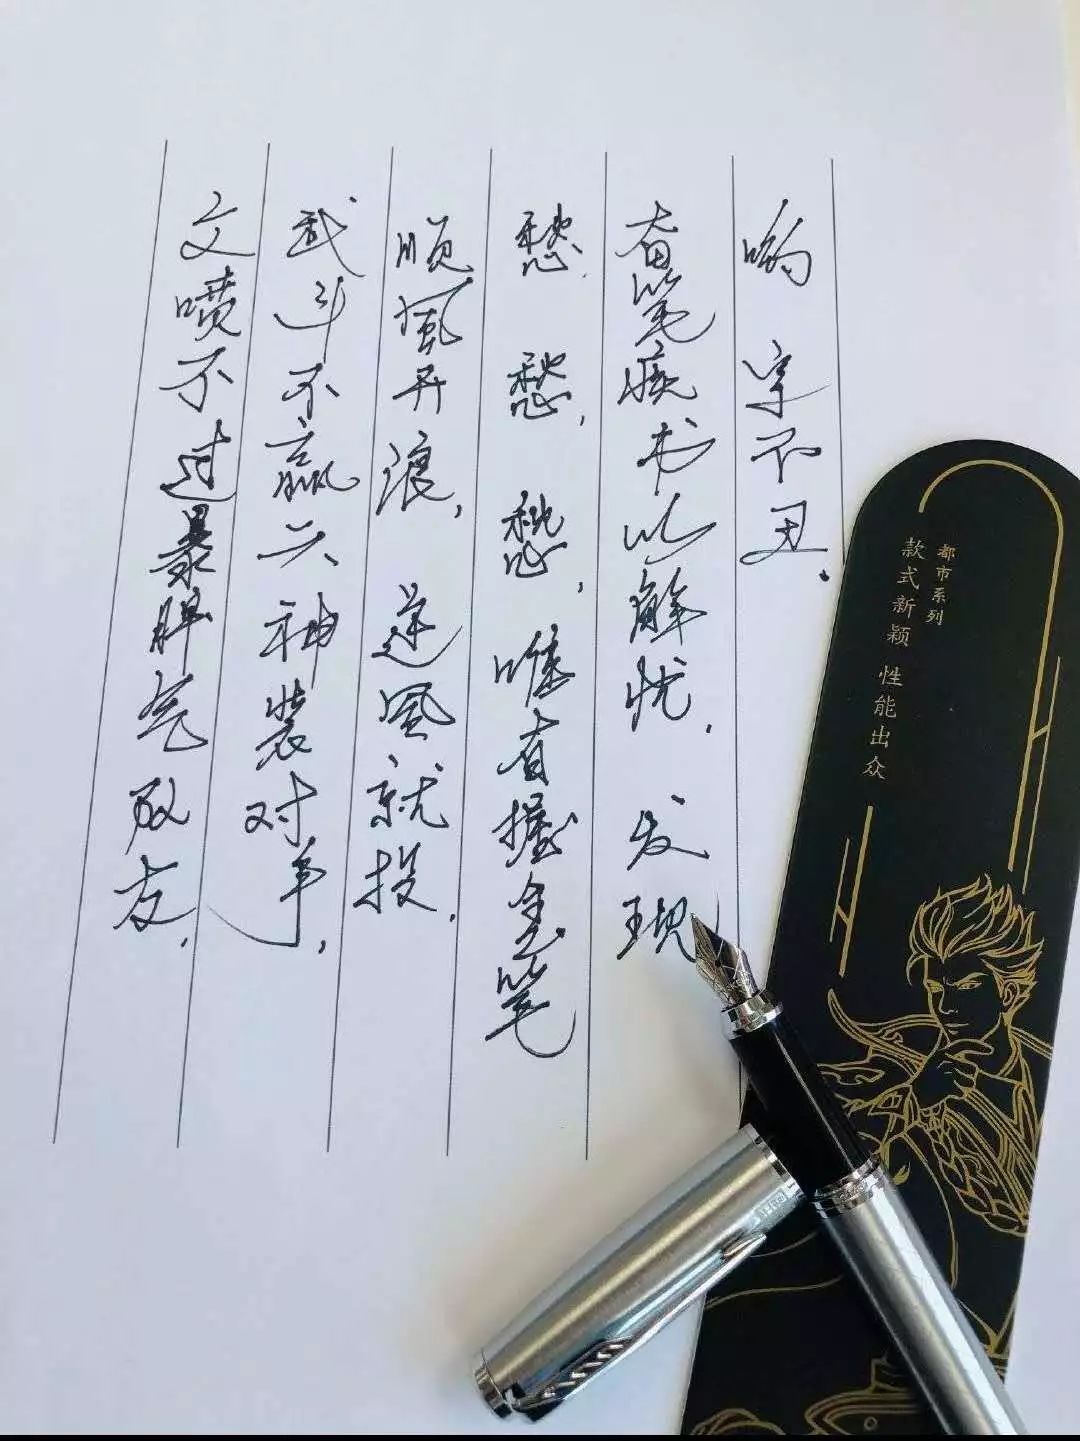 文喷不过暴脾气队友,
武斗不赢六神装对手,
顺风开浪, 逆风就投,
愁, 愁, 愁, 唯有握金笔
奋笔疾书以解忧, 发现
哟 字不丑.
都市系列
款式新颖 性能出众